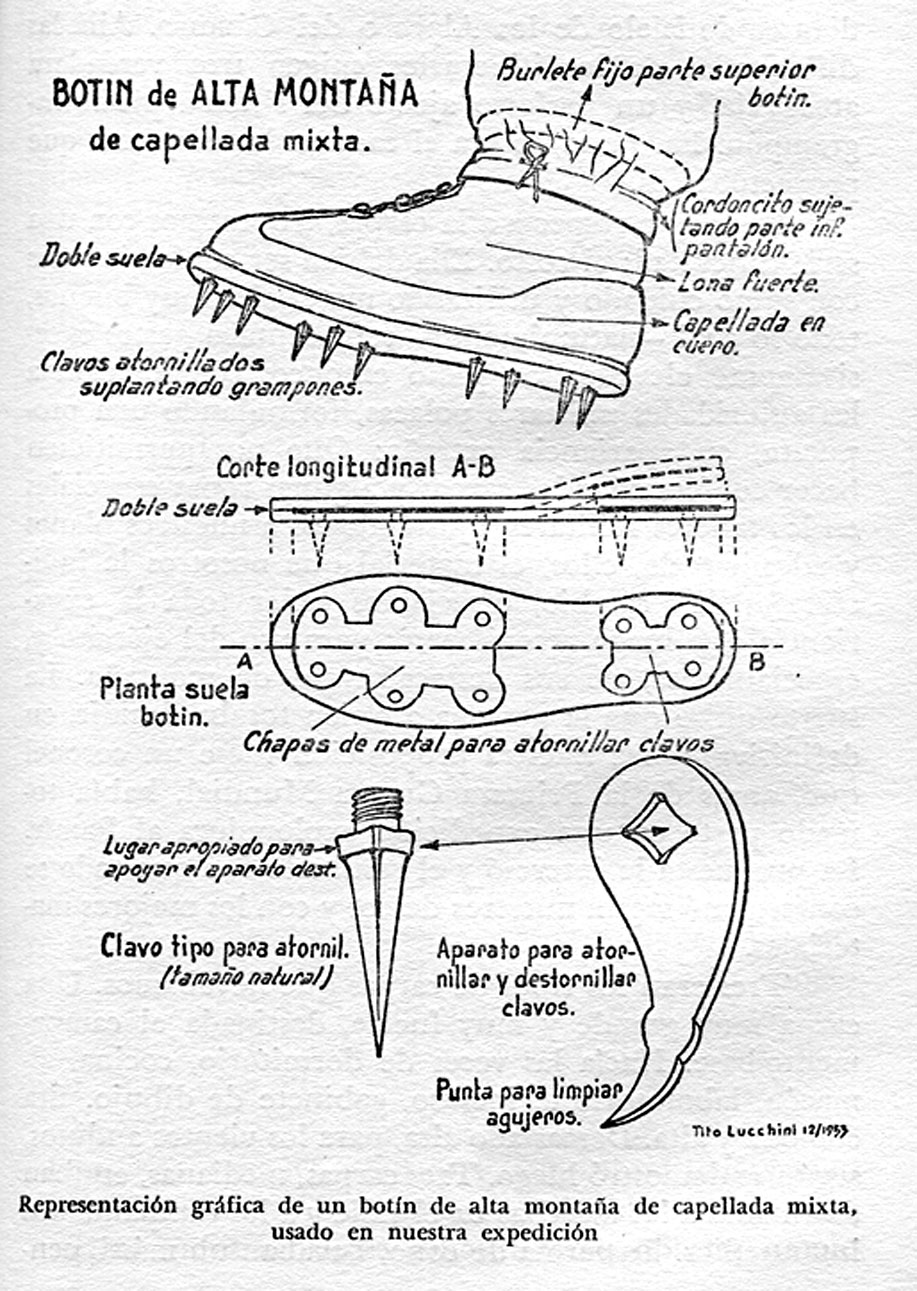 BOTIN de ALTA MONTAÑA
de capellada mixta.
Burlete fijo parte superior
botin.
Cordoncito suje-
tando parte inf.
pantalón.
Doble suela
Lona fuerte.
Capellada en
cuero.
Clavos atornillados
suplantando grampones.
Corte longitudinal A-B
Doble suela
A
B
Planta suela
botin.
Chapas de metal para atornillar clavos
Lugar apropiado para
apoyar el aparato dest.
Clavo tipo para atornil.
(tamaño natural)
Aparato para ator-
nillar y destornillar
clavos.
Punta para limpiar
agujeros.
Tito Lucchini 12/1953
Representación gráfica de un botín de alta montaña de capellada mixta,
usado en nuestra expedición